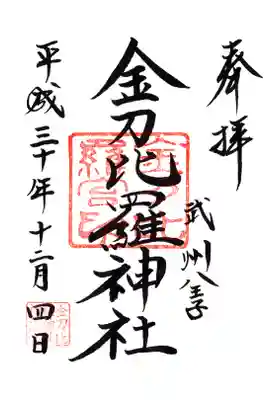 奉拝
武州八王子
金刀比羅神社
平成三十年十二月四日